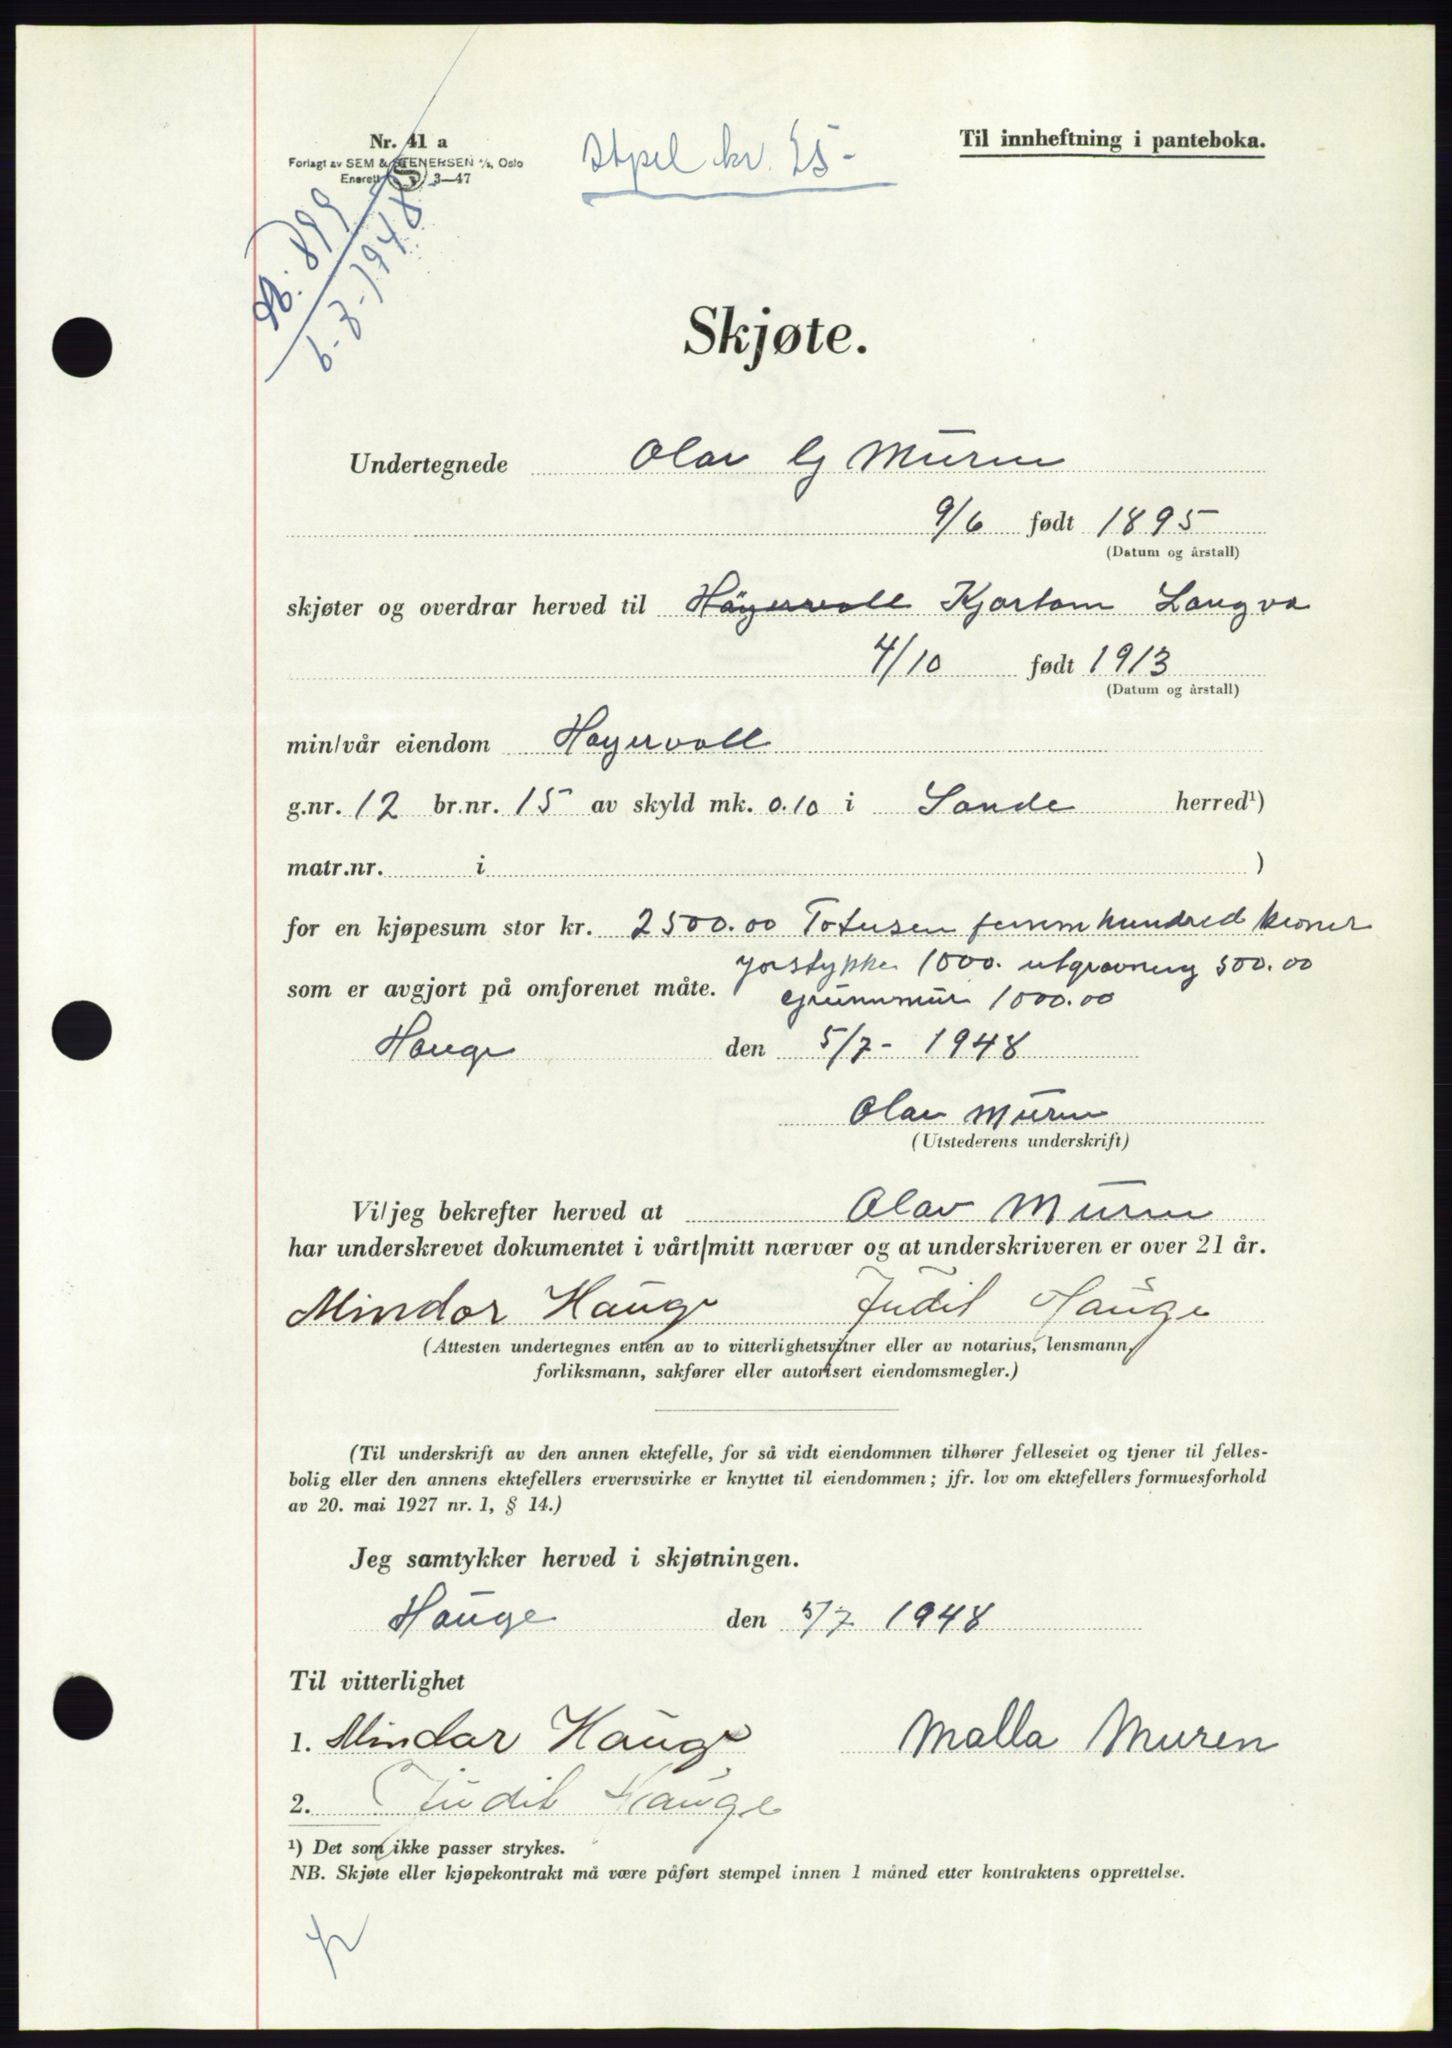 Nr. 41 a
Forlagt av SEM & STENERSEN A/S, Oslo
Enerett S 3—47
Stpel kr. 25-
Til innheftning i panteboka.
899
6-7-1948
Skjøte.
Undertegnede Olav G Muren
9/6 født 1895
(Datum og årstall)
skjøter og overdrar herved til Höyervoll Kjartan Langva
4/10 født 1913
(Datum og årstall)
min/vår eiendom Høyervoll
g.nr. 12 br.nr. 15 av skyld mk. 0.10 i Sande herred¹)
matr.nr. i )
for en kjøpesum stor kr. 2500.00 Totusen femm hundred kroner
jorstykke 1000. utgravning 500.00
som er avgjort på omforenet måte. Grunnmur 1000.00
Hauge den 5/7- 1948
Olav Muren
(Utstederens underskrift)
Vi/jeg bekrefter herved at Olav Muren
har underskrevet dokumentet i vårt/mitt nærvær og at underskriveren er over 21 år.
Mindor Hauge Judit Hauge
(Attesten undertegnes enten av to vitterlighetsvitner eller av notarius, lensmann,
forliksmann, sakfører eller autorisert eiendomsmegler.)
(Til underskrift av den annen ektefelle, for så vidt eiendommen tilhører felleseiet og tjener til felles-
bolig eller den annens ektefellers ervervsvirke er knyttet til eiendommen; jfr. lov om ektefellers formuesforhold
av 20. mai 1927 nr. 1, § 14.)
Jeg samtykker herved i skjøtningen.
Hauge den 5/7 1948
Til vitterlighet
1. Mindor Hauge Malla Muren
2. Judit Hauge
¹) Det som ikke passer strykes.
NB. Skjøte eller kjøpekontrakt må være påført stempel innen 1 måned etter kontraktens opprettelse.